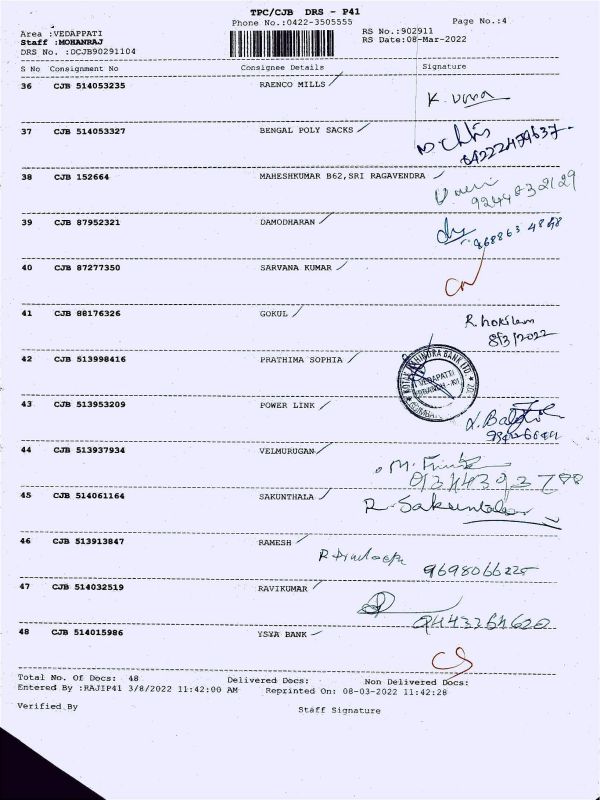 TPC/CJB DRS - P41
Phone No.:0422-3505555
Page No.:4
Area :VEDAPPATI
RS No.:902911
Staff :MOHANRAJ
RS Date:08-Mar-2022
DRS No. :DCJB90291104
S No Consignment No Consignee Details Signature
36 CJB 514053235 RAENCO MILLS
K. Uma
37 CJB 514053327 BENGAL POLY SACKS
04222479637
38 CJB 152664 MAHESHKUMAR B62,SRI RAGAVENDRA
9244832129
39 CJB 87952321 DAMODHARAN
40 CJB 87277350 SARVANA KUMAR
41 CJB 88176326 GOKUL
8/3/2022
42 CJB 513998416 PRATHIMA SOPHIA
VEDAPATTI
43 CJB 513953209 POWER LINK
44 CJB 513937934 VELMURUGAN
45 CJB 514061164 SAKUNTHALA
R. Sakuntala
46 CJB 513913847 RAMESH
9698066225
47 CJB 514032519 RAVIKUMAR
9443264620
48 CJB 514015986 YSYA BANK
Total No. Of Docs: 48 Delivered Docs: Non Delivered Docs:
Entered By :RAJIP41 3/8/2022 11:42:00 AM Reprinted On: 08-03-2022 11:42:28
Verified By Staff Signature